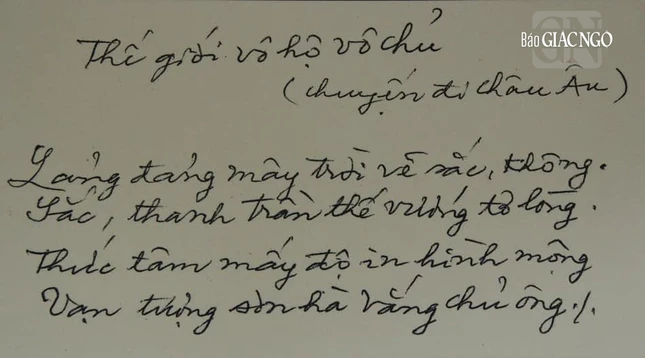 Báo GIÁC NGỘ
Thế giới vô hộ vô chủ
(chuyến đi châu Âu)
Lảng đảng mây trời vẽ sắc, không.
Sắc, thanh trần thế vướng tơ lòng.
Thức tâm mấy độ in hình mộng
Vạn tượng sơn hà vắng chủ ông./.